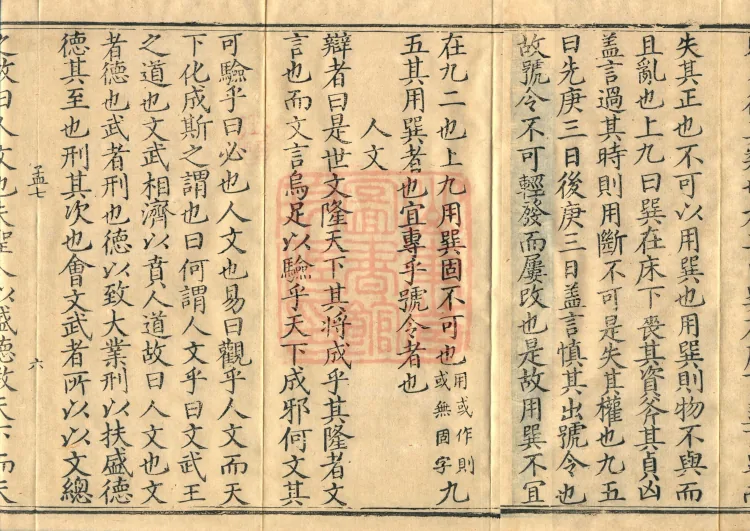 失其正也不可以用巽也用巽則物不與而
且亂也上九曰巽在床下喪其資斧其貞凶
盖言過其時則用斷不可是失其權也九五
曰先庚三日後庚三日盖言慎其出號令也
故號令不可輕發而屢改也是故用巽不宜
在九二也上九用巽固不可也用或作則或無固字九
五其用巽者也宜專乎號令者也
人文
辯者曰是世文隆天下其將成乎其隆者文
言也而文言烏足以驗乎天下成邪何文其
可驗乎曰必也人文也易曰觀乎人文而天
下化成斯之謂也曰何謂人文乎曰文武王
之道也文武相濟以賁人道故曰人文也文
者德也武者刑也德以致大業刑以扶盛德
德其至也刑其次也會文武者所以以文總
孟七
六
之故曰人文也夫聖人以盛德教天下而天